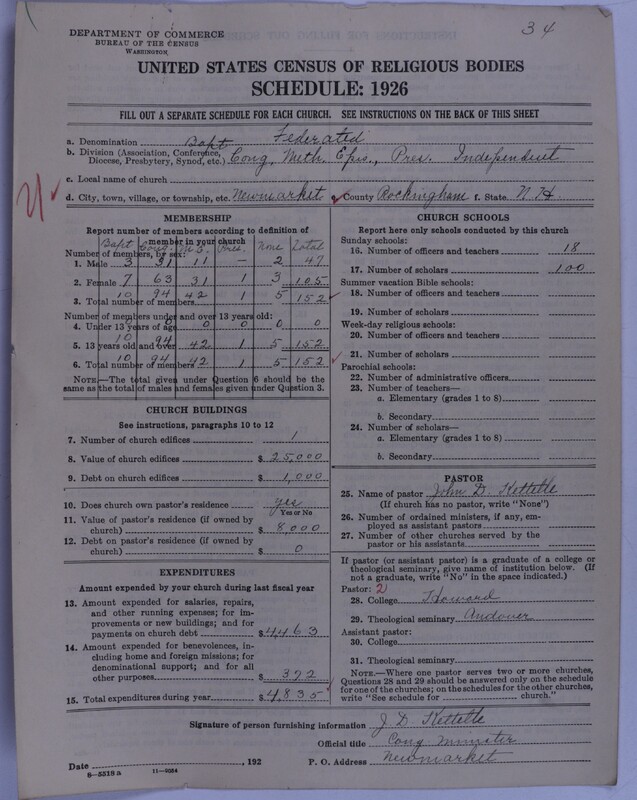 34
DEPARTMENT OF COMMERCE
BUREAU OF THE CENSUS
WASHINGTON
UNITED STATES CENSUS OF RELIGIOUS BODIES
SCHEDULE: 1926
FILL OUT A SEPARATE SCHEDULE FOR EACH CHURCH. SEE INSTRUCTIONS ON THE BACK OF THIS SHEET
a. Denomination Bapt Federated
b. Division (Association, Conference, Diocese, Presbytery, Synod, etc.) Cong, Meth. Epis., Pres. Independent
c. Local name of church
d. City, town, village, or township, etc. Newmarket County Rockingham f. State N.H
MEMBERSHIP
Report number of members according to definition of member in your church
Bapt Cong. M.E. Pres. None Total
Number of members, by sex:
1. Male 3 31 11 – 2 47
2. Female 7 63 31 1 3 105
3. Total number of members 10 94 42 1 5 152
Number of members under and over 13 years old:
4. Under 13 years of age 0 0 0 0 0
5. 13 years old and over 10 94 42 1 5 152
6. Total number of members 10 94 42 1 5 152
NOTE.—The total given under Question 6 should be the same as the total of males and females given under Question 3.
CHURCH BUILDINGS
See instructions, paragraphs 10 to 12
7. Number of church edifices 1
8. Value of church edifices $ 25,000
9. Debt on church edifices $ 1,000
10. Does church own pastor's residence yes
Yes or No
11. Value of pastor's residence (if owned by church) $ 8,000
12. Debt on pastor's residence (if owned by church) $ 0
EXPENDITURES
Amount expended by your church during last fiscal year
13. Amount expended for salaries, repairs, and other running expenses; for improvements or new buildings; and for payments on church debt $ 4463
14. Amount expended for benevolences, including home and foreign missions; for denominational support; and for all other purposes $ 372
15. Total expenditures during year $ 4,835
CHURCH SCHOOLS
Report here only schools conducted by this church
Sunday schools:
16. Number of officers and teachers 18
17. Number of scholars 100
Summer vacation Bible schools:
18. Number of officers and teachers
19. Number of scholars
Week-day religious schools:
20. Number of officers and teachers
21. Number of scholars
Parochial schools:
22. Number of administrative officers
23. Number of teachers—
a. Elementary (grades 1 to 8)
b. Secondary
24. Number of scholars—
a. Elementary (grades 1 to 8)
b. Secondary
PASTOR
25. Name of pastor John D. Kettelle
(If church has no pastor, write "None")
26. Number of ordained ministers, if any, employed as assistant pastors
27. Number of other churches served by the pastor or his assistants
If pastor (or assistant pastor) is a graduate of a college or theological seminary, give name of institution below. (If not a graduate, write "No" in the space indicated.)
Pastor: 2
28. College Howard
29. Theological seminary Andover
Assistant pastor:
30. College
31. Theological seminary
NOTE.—Where one pastor serves two or more churches, Questions 28 and 29 should be answered only on the schedule for one of the churches; on the schedules for the other churches, write "See schedule for church."
Signature of person furnishing information J D Kettelle
Official title Cong Minister
Date , 192 P. O. Address Newmarket
8—5518a 11—9054